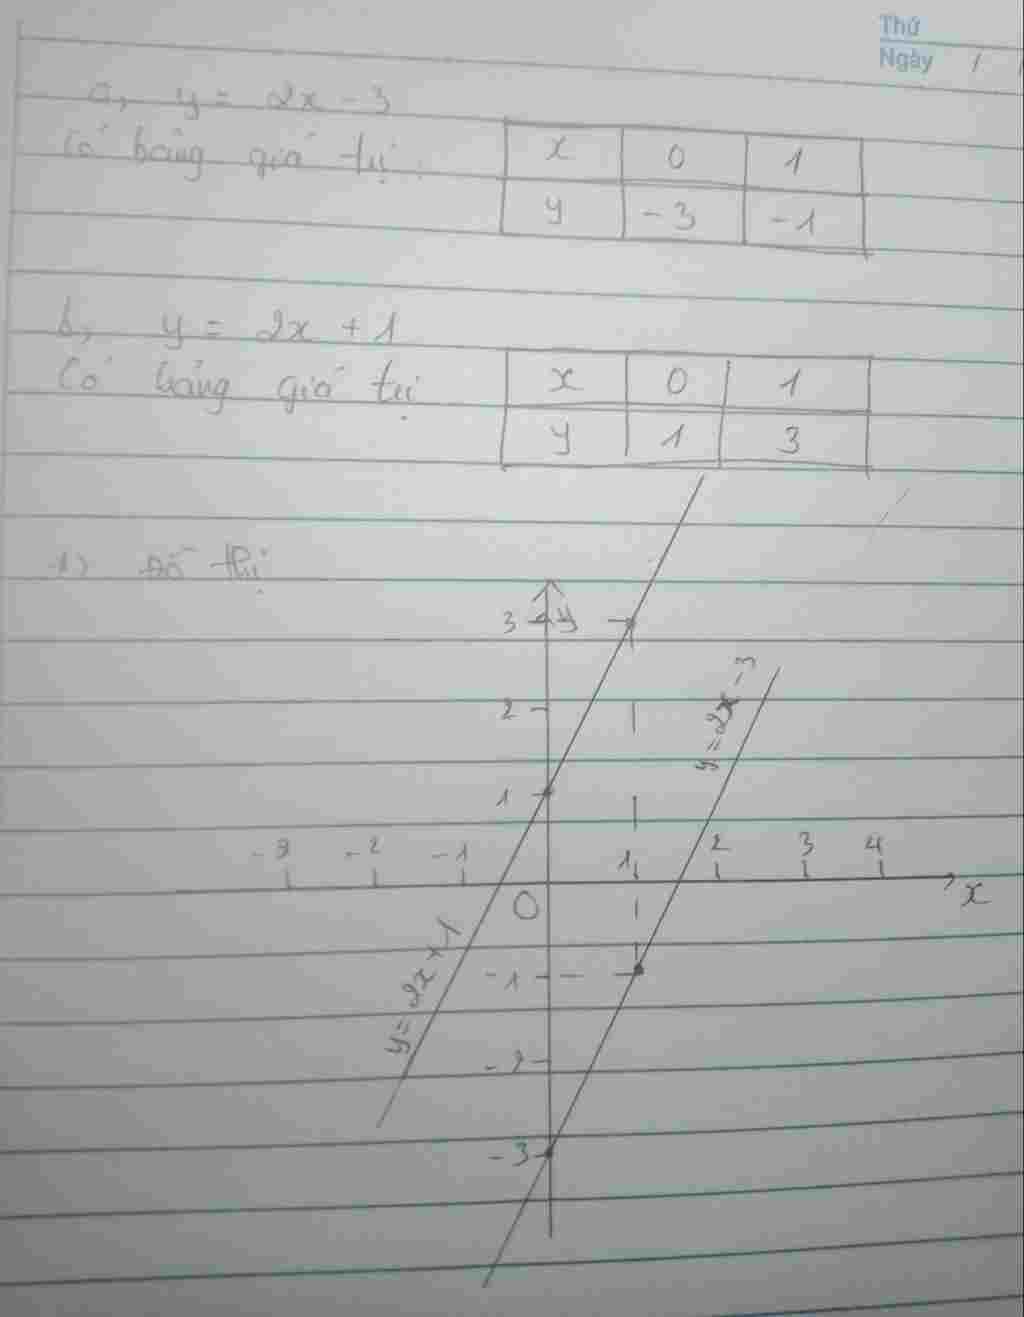 Thứ
Ngày / /
a, y = 2x - 3
Có bảng giá trị:
x 0 1
y -3 -1
b, y = 2x + 1
Có bảng giá trị
x 0 1
y 1 3
1) Đồ thị
3 y
2
1
y = 2x - 3
-3 -2 -1 1 2 3 4
O x
y = 2x + 1
-1
-2
-3